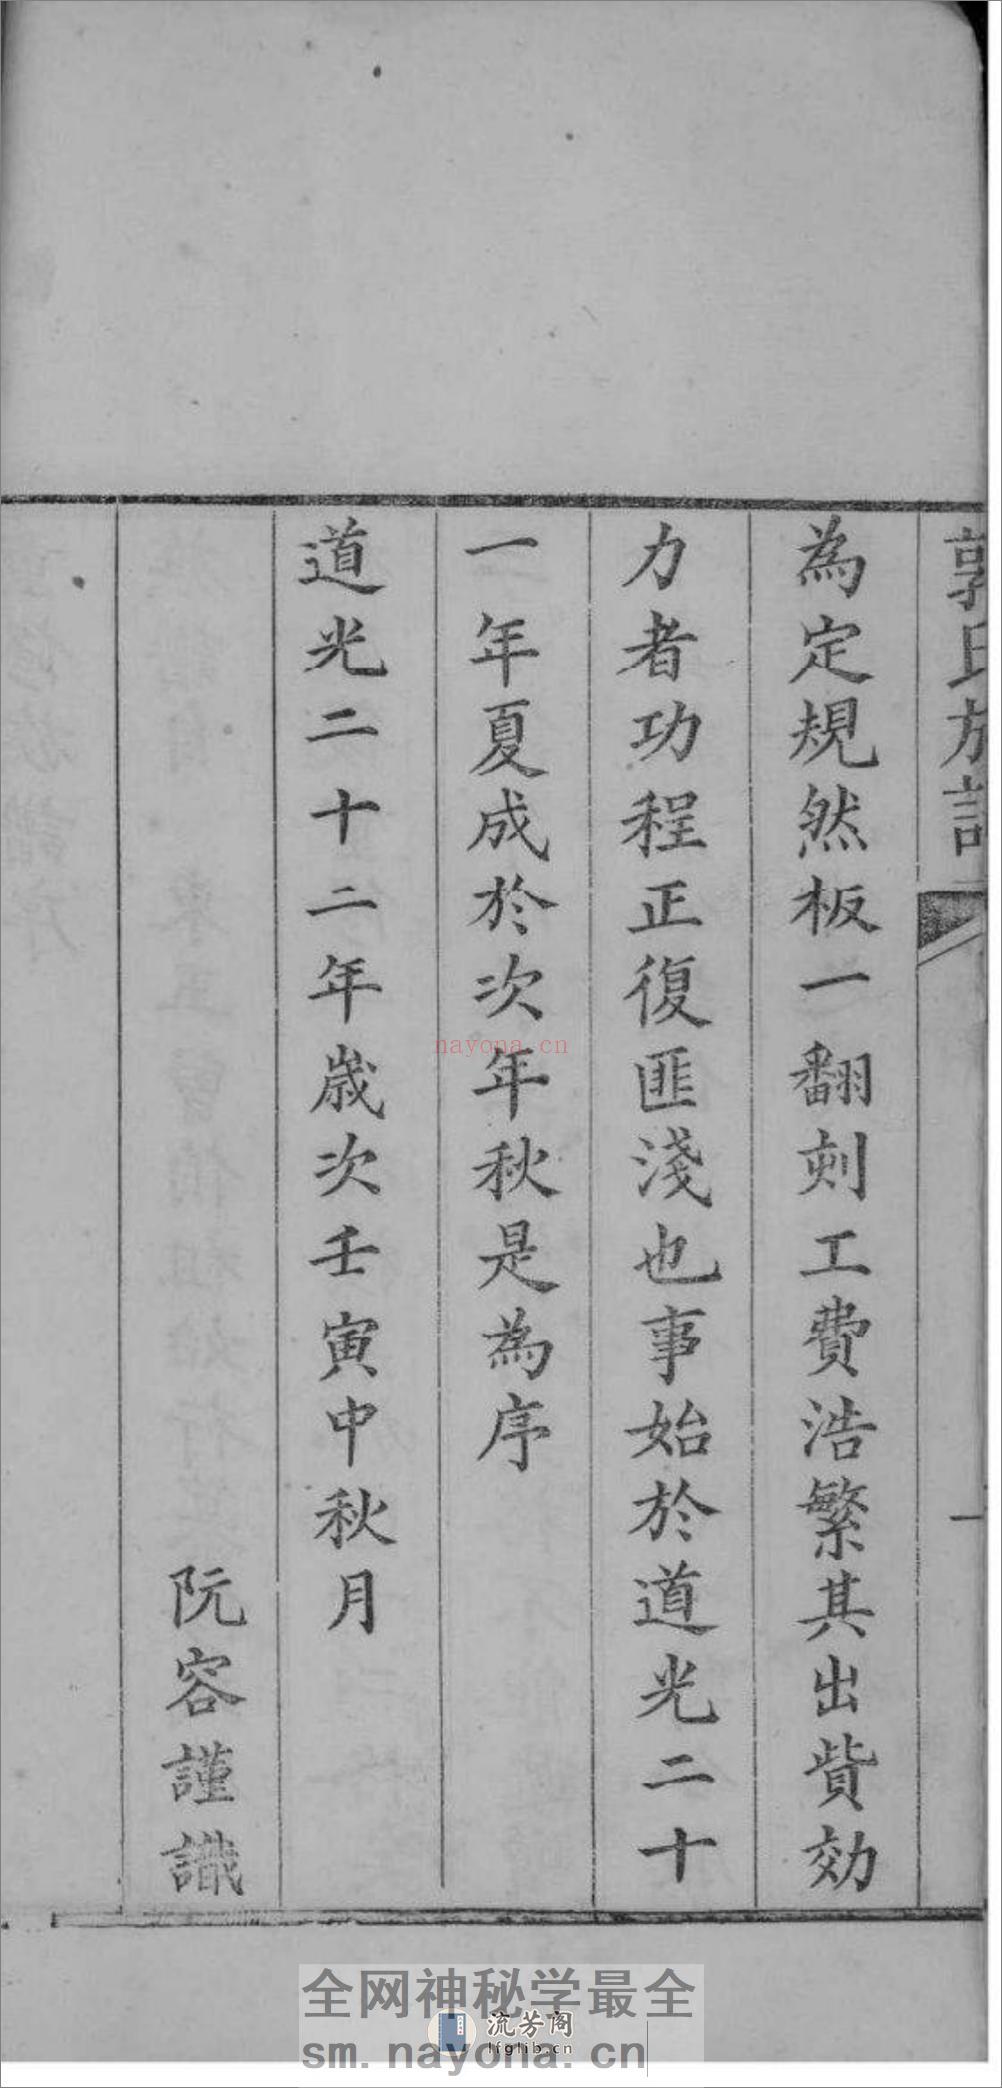 郭氏族譜
一
為定規然板一翻刻工費浩繁其出貲効
力者功程正復匪淺也事始於道光二十
一年夏成於次年秋是為序
道光二十二年歲次壬寅中秋月
阮容謹識
nayona.cn
全网神秘学最全
流芳阁
lfglib.cn
sm.nayona.cn